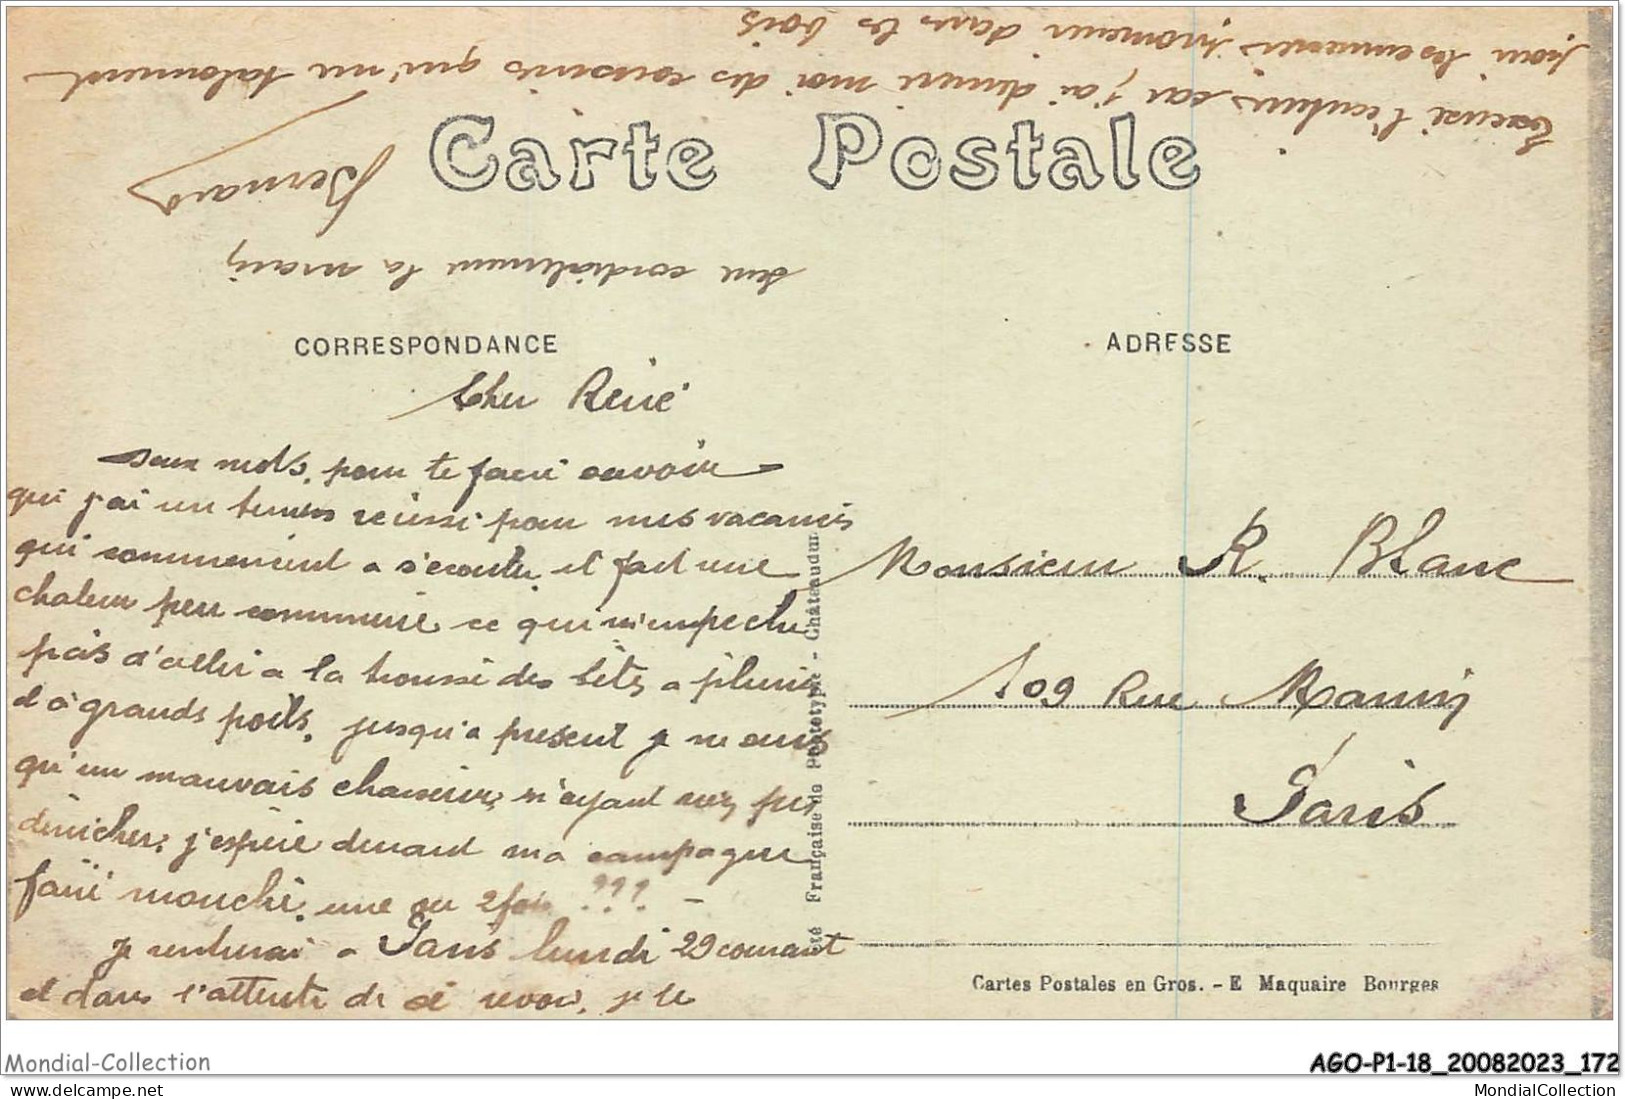 Excuse l'écriture car j'ai derrière moi des cousins qui me talonnent
pour les emmener promener dans les bois
Carte Postale
Bernard
serre cordialement la main
CORRESPONDANCE
ADRESSE
Cher René
deux mots, pour te faire savoir
que j'ai un temps réussi pour mes vacances
qui commencent a s'écouler, il fait une
chaleur peu commune ce qui m'empeche
pas d'aller a la trousse des bêtes a plumes
et à grands poils, jusqu'a present je ne suis
qu'un mauvais chasseur, n'ayant rien pu
dénicher, j'espère devant ma campagne
faire mouche, une ou 2 fois ??? -
je rentrerai a Paris lundi 29 courant
et dans l'attente de te revoir, je te
Monsieur R. Blanc
109 Rue
Paris
Française de Phototypie - Châteaudun
Cartes Postales en Gros. - E Maquaire Bourges
Mondial-Collection
AGO-P1-18_20082023_172
MondialCollection